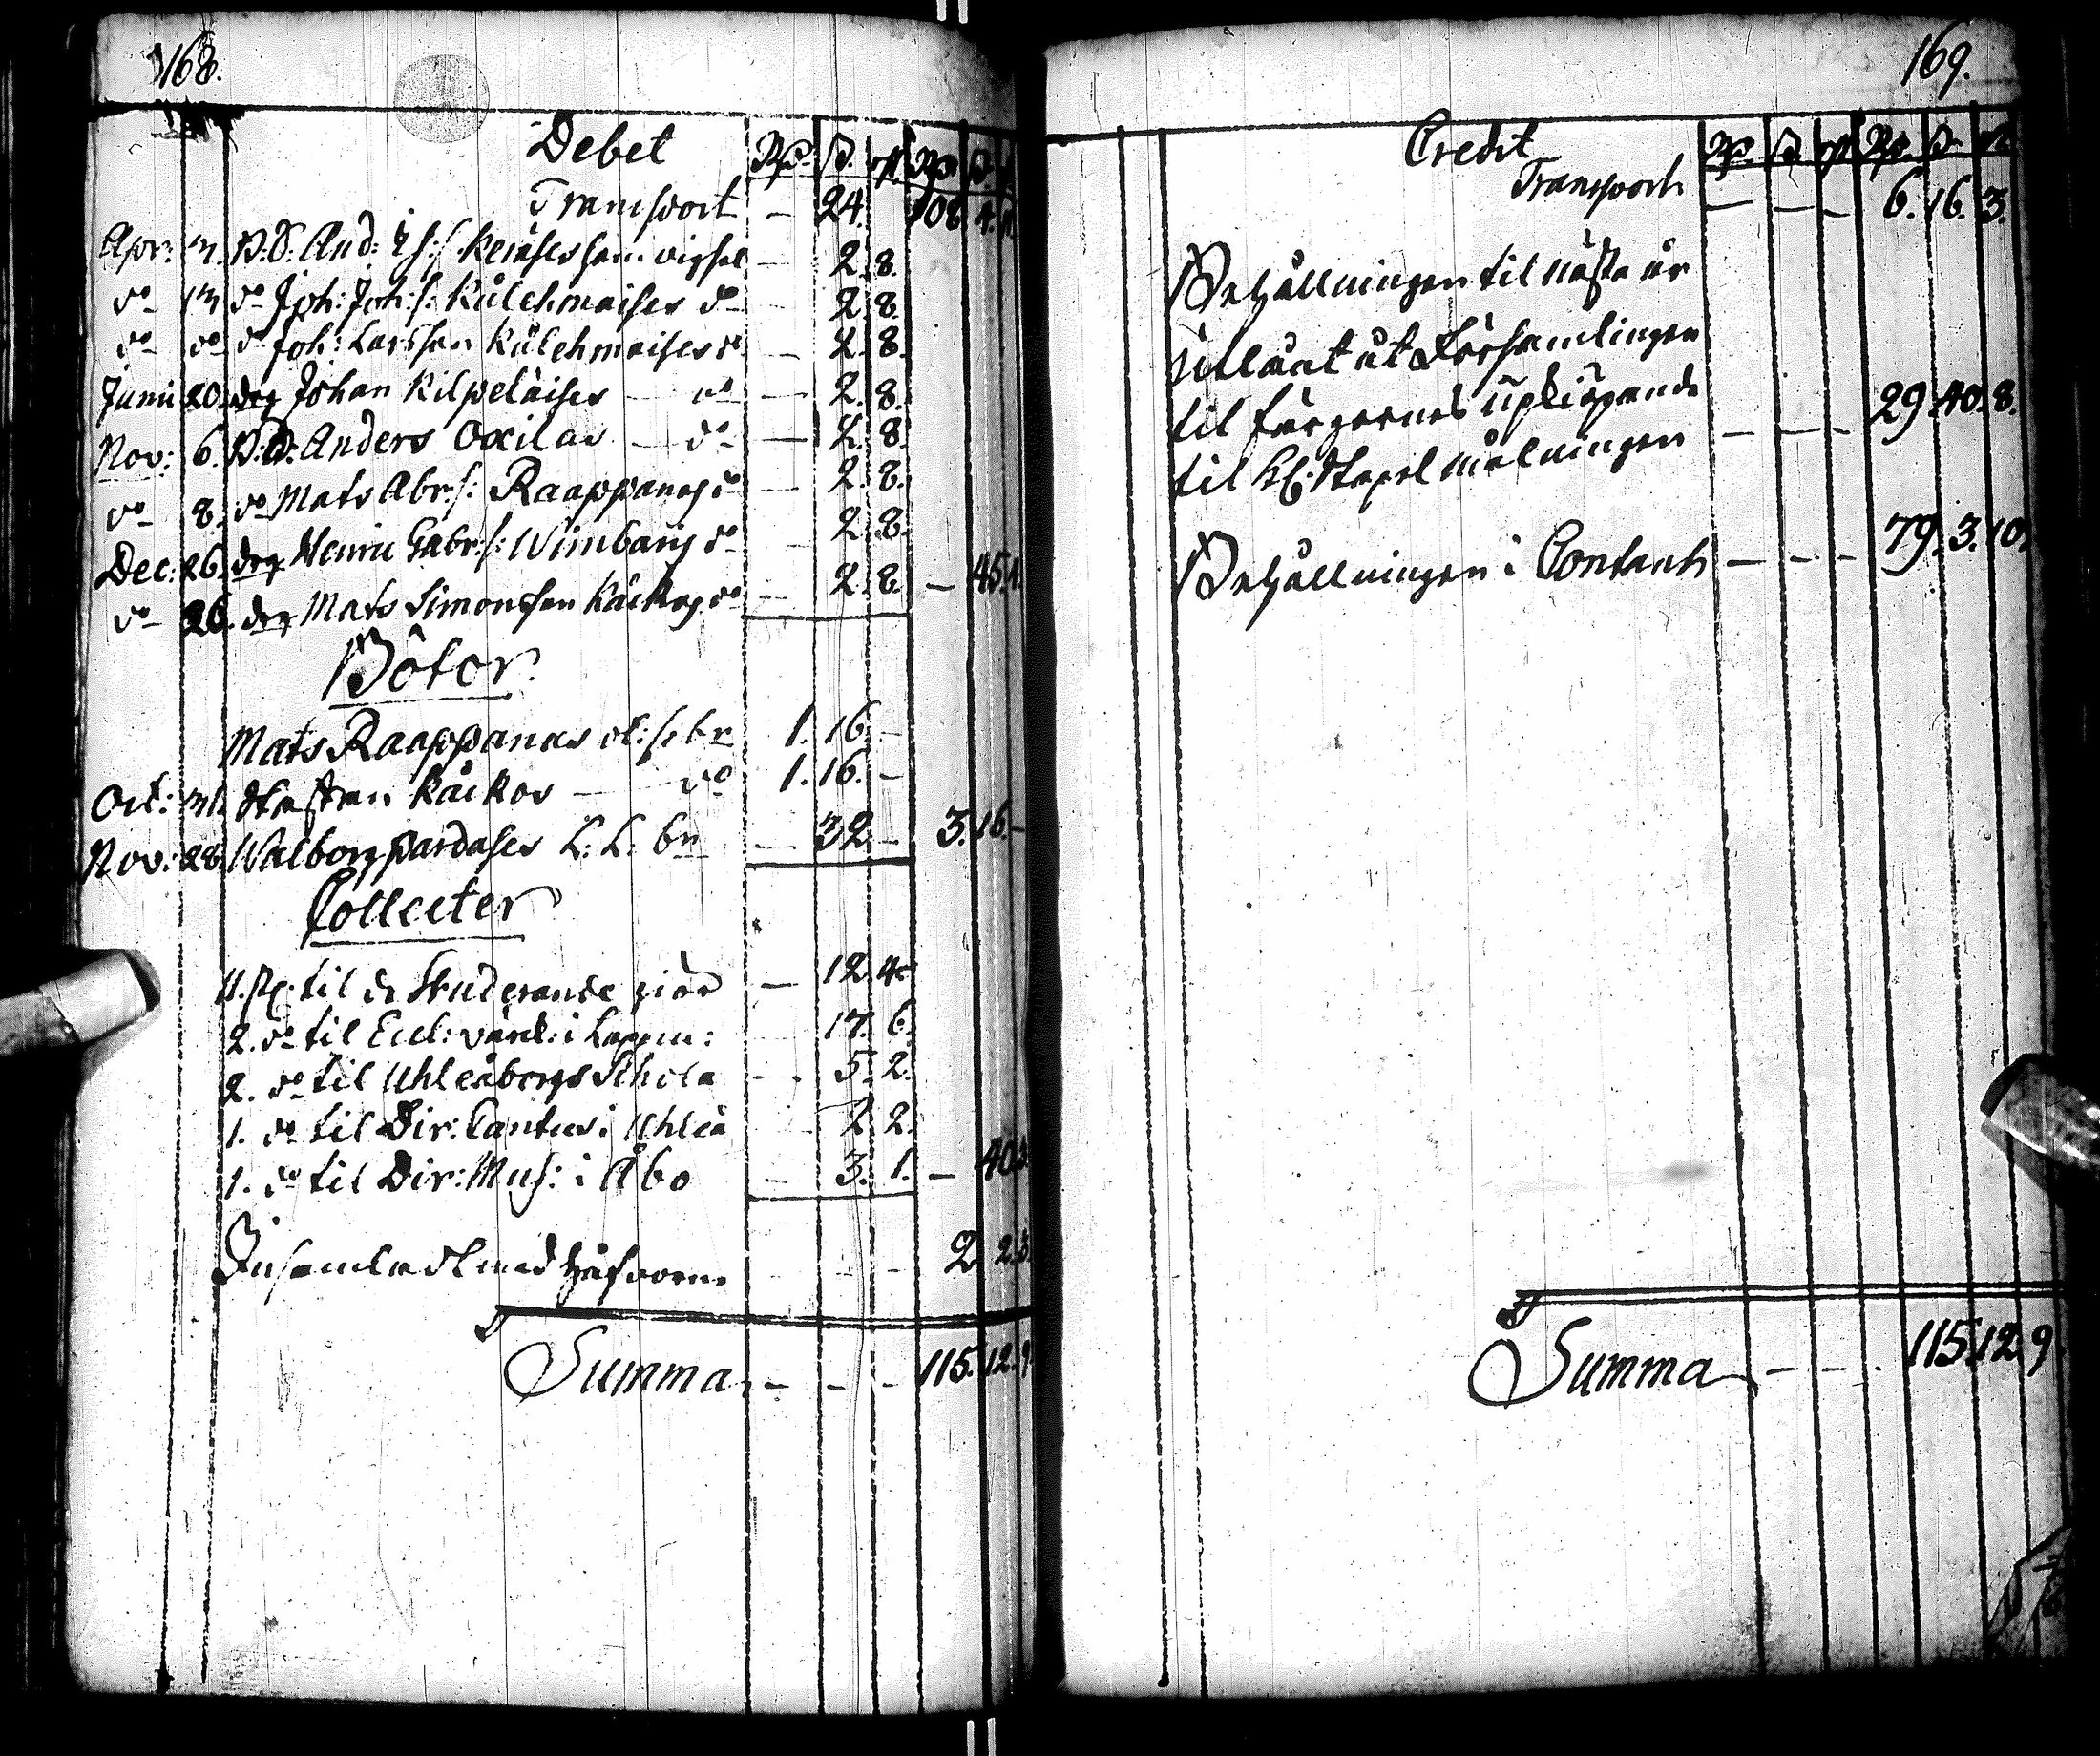 168.
Debet Rd. s. rst. Rd. s.
Transport — 24. 108. 4. 11.
Apr: 3. B.D. And: vigsel — 2. 8.
do 13. do Joh: Joh:s: Kulehmaises do — 2. 8.
do do do Joh: Larsson Kulehmaises do — 2. 8.
Junii 20. drg Johan Kilpeläises — do — 2. 8.
Nov: 6. B.D. Anders Oxilas — do — 2. 8.
do 8. do Mats Abr:s: Raappanas do — 2. 8.
Dec: 26. drg Henric Gabr:s: Wimbarg do — 2. 8.
do 26. drg Mats Simonsson Käckos do — 2. 8. — 45. 4.
Böter
Mats Raappanas br 1. 16. —
Oct: 31. Staffan Käckos — do 1. 16. —
Nov: 28. Walborg Pardases L: L: br — 32. — 3. 16. —
Collecter
4. st: til de Studerande giär — 12. 4.
2. do til Eccl: värck: i Lappm: — 17. 6.
2. do til Uhleåborgs Schola — 5. 2.
1. do til Dir: Cantus i Uhleå — 2. 2.
1. do til Dir: Mus: i Åbo — 3. 1. — 40. 3.
Insamladt med håfvorne — — — 2. 2.
Summa — — — 115. 12. 9
169.
Credit Rd. s. rst. Rd. s. rst.
Transport — — — 6. 16. 3.
Behållningen til nästa år
utlånt åt Församlingen
til färgernes upkiöpande
til Kl: Stapel målningen — — — 29. 40. 8.
Behållningen i Contant — — — 79. 3. 10.
Summa — — — 115. 12. 9